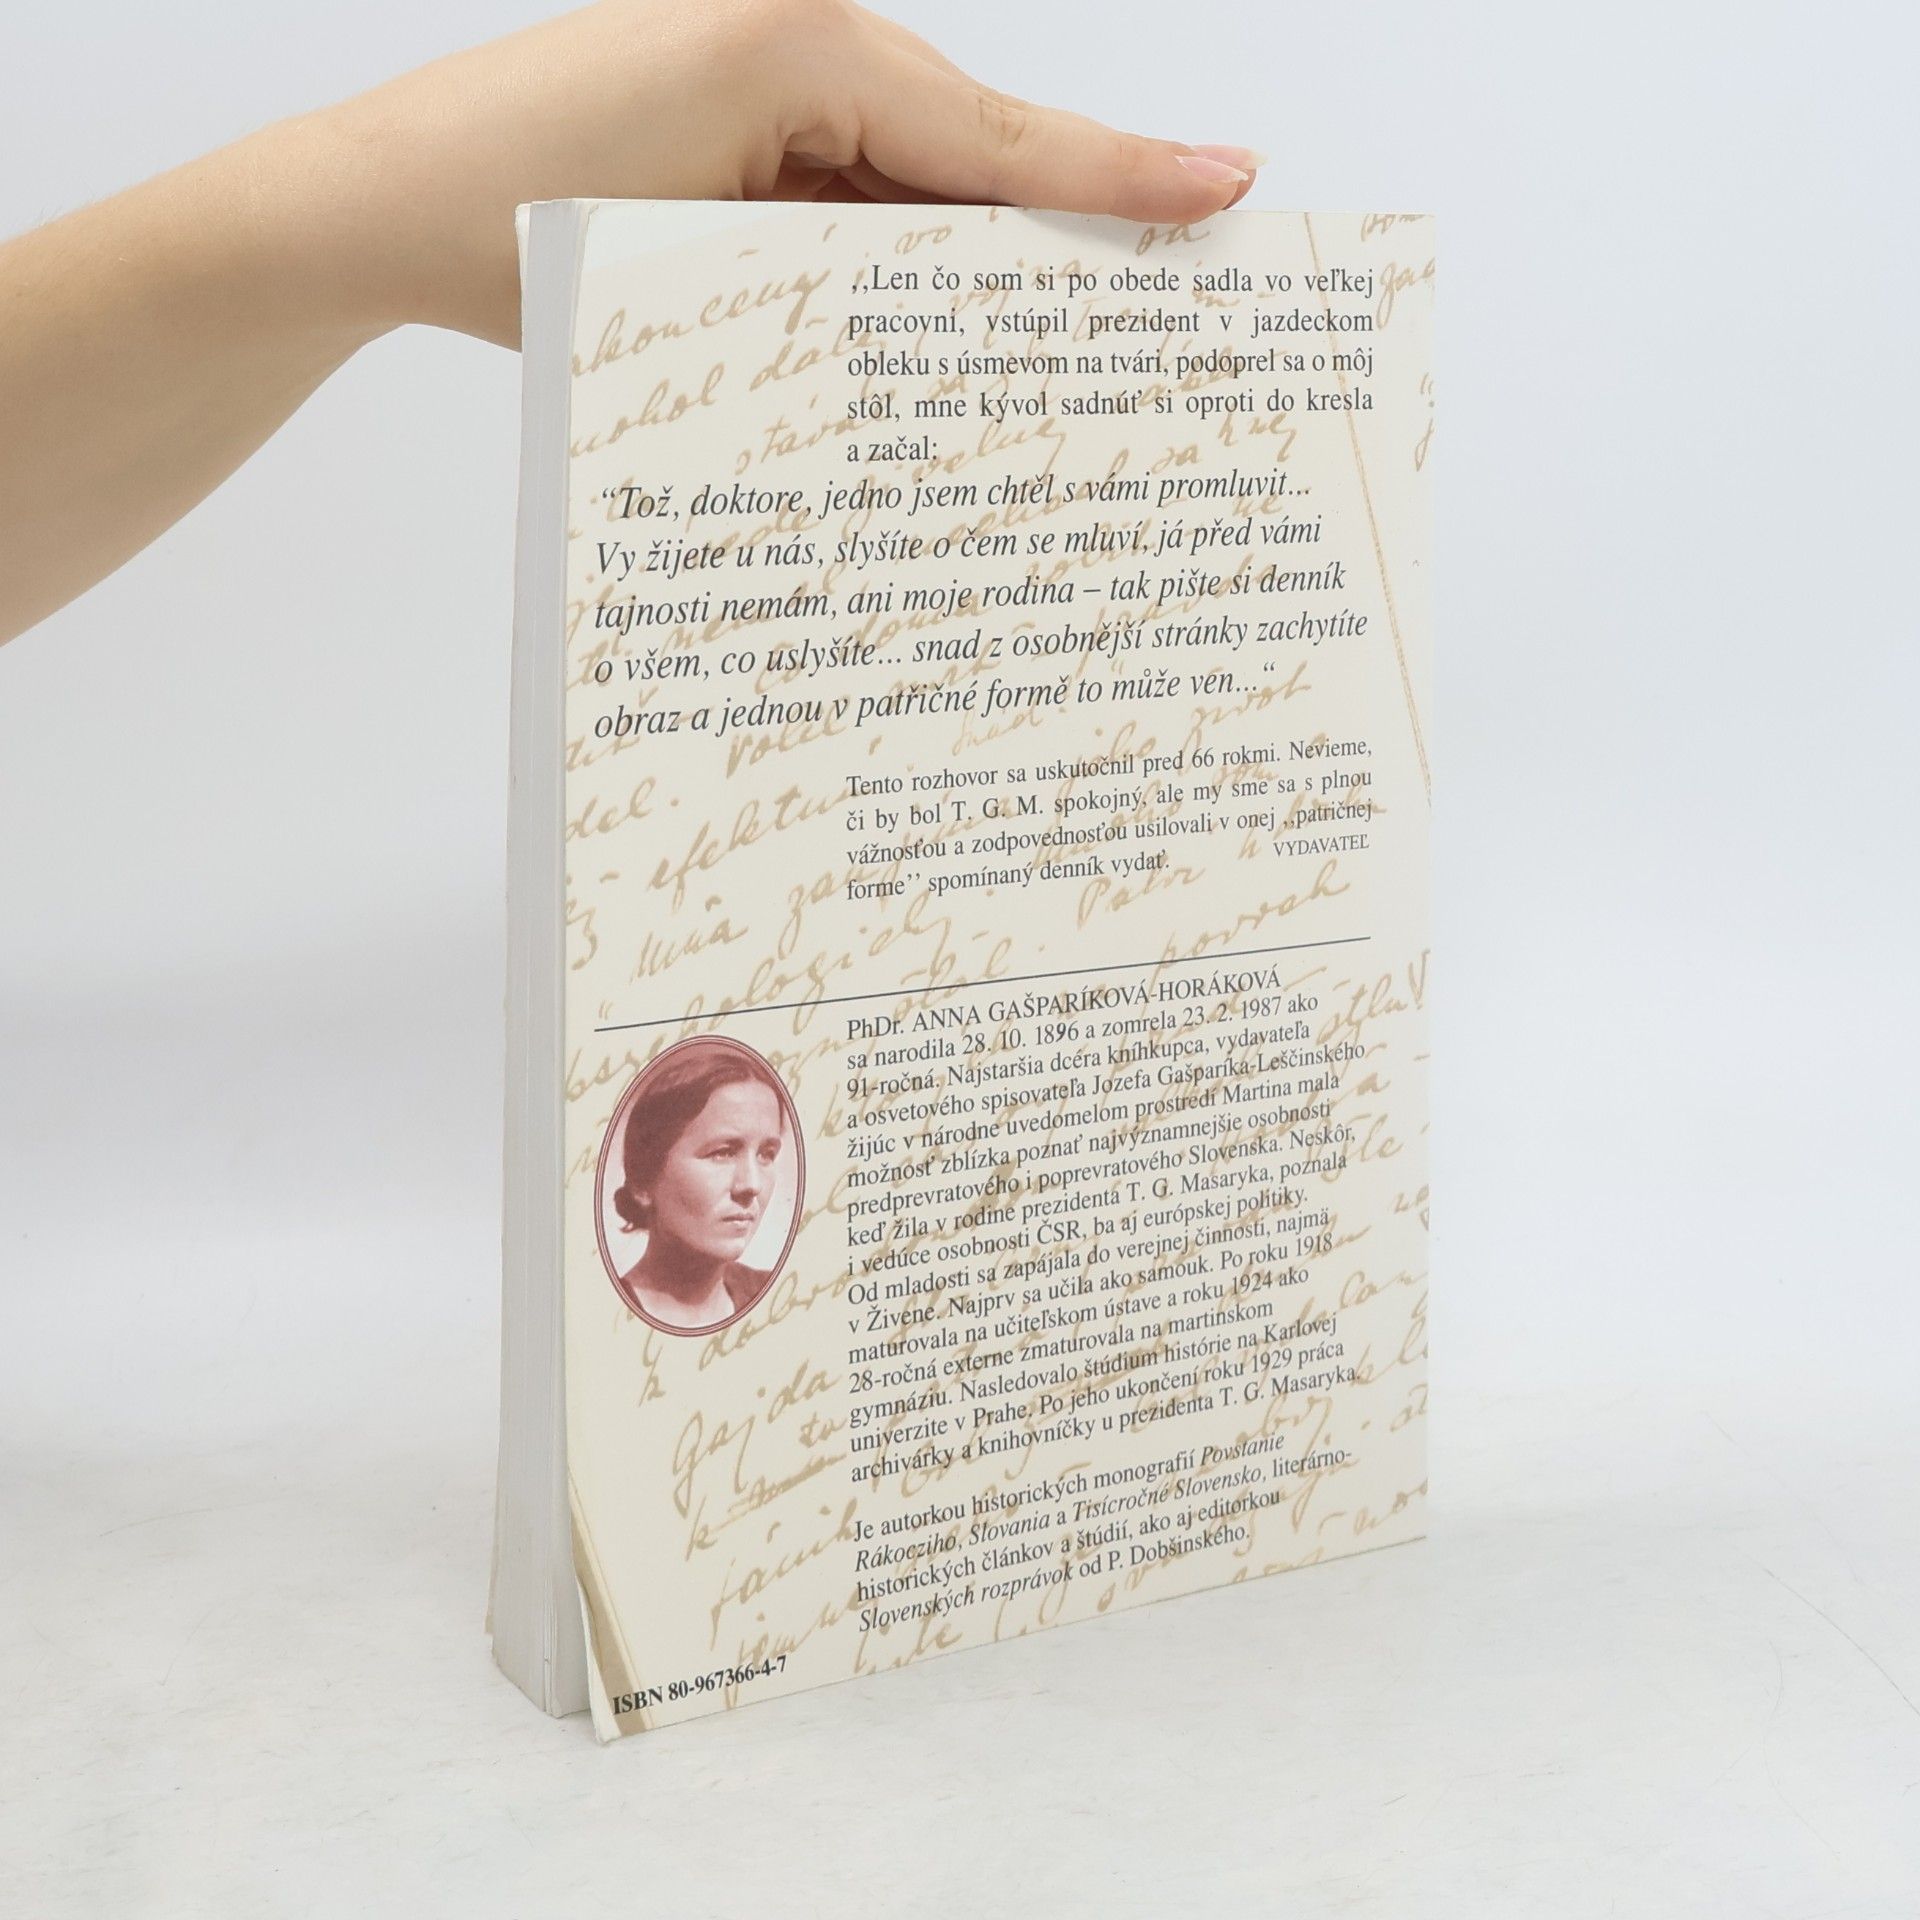 ,,Len čo som si po obede sadla vo veľkej
pracovni, vstúpil prezident v jazdeckom
obleku s úsmevom na tvári, podoprel sa o môj
stôl, mne kývol sadnúť si oproti do kresla
a začal:
“Tož, doktore, jedno jsem chtěl s vámi promluvit...
Vy žijete u nás, slyšíte o čem se mluví, já před vámi
tajnosti nemám, ani moje rodina – tak pište si denník
o všem, co uslyšíte... snad z osobnější stránky zachytíte
obraz a jednou v patřičné formě to může ven...“
Tento rozhovor sa uskutočnil pred 66 rokmi. Nevieme,
či by bol T. G. M. spokojný, ale my sme sa s plnou
vážnosťou a zodpovednosťou usilovali v onej ,,patričnej
forme’’ spomínaný denník vydať.
VYDAVATEĽ
PhDr. ANNA GAŠPARÍKOVÁ-HORÁKOVÁ
sa narodila 28. 10. 1896 a zomrela 23. 2. 1987 ako
91-ročná. Najstaršia dcéra kníhkupca, vydavateľa
a osvetového spisovateľa Jozefa Gašparíka-Leščinského
žijúc v národne uvedomelom prostredí Martina mala
možnosť zblízka poznať najvýznamnejšie osobnosti
predprevratového i poprevratového Slovenska. Neskôr,
keď žila v rodine prezidenta T. G. Masaryka, poznala
i vedúce osobnosti ČSR, ba aj európskej politiky.
Od mladosti sa zapájala do verejnej činnosti, najmä
v Živene. Najprv sa učila ako samouk. Po roku 1918
maturovala na učiteľskom ústave a roku 1924 ako
28-ročná externe zmaturovala na martinskom
gymnáziu. Nasledovalo štúdium histórie na Karlovej
univerzite v Prahe. Po jeho ukončení roku 1929 práca
archivárky a knihovníčky u prezidenta T. G. Masaryka.
Je autorkou historických monografií Povstanie
Rákocziho, Slovania a Tisícročné Slovensko, literárno-
historických článkov a štúdií, ako aj editorkou
Slovenských rozprávok od P. Dobšinského.
ISBN 80-967366-4-7